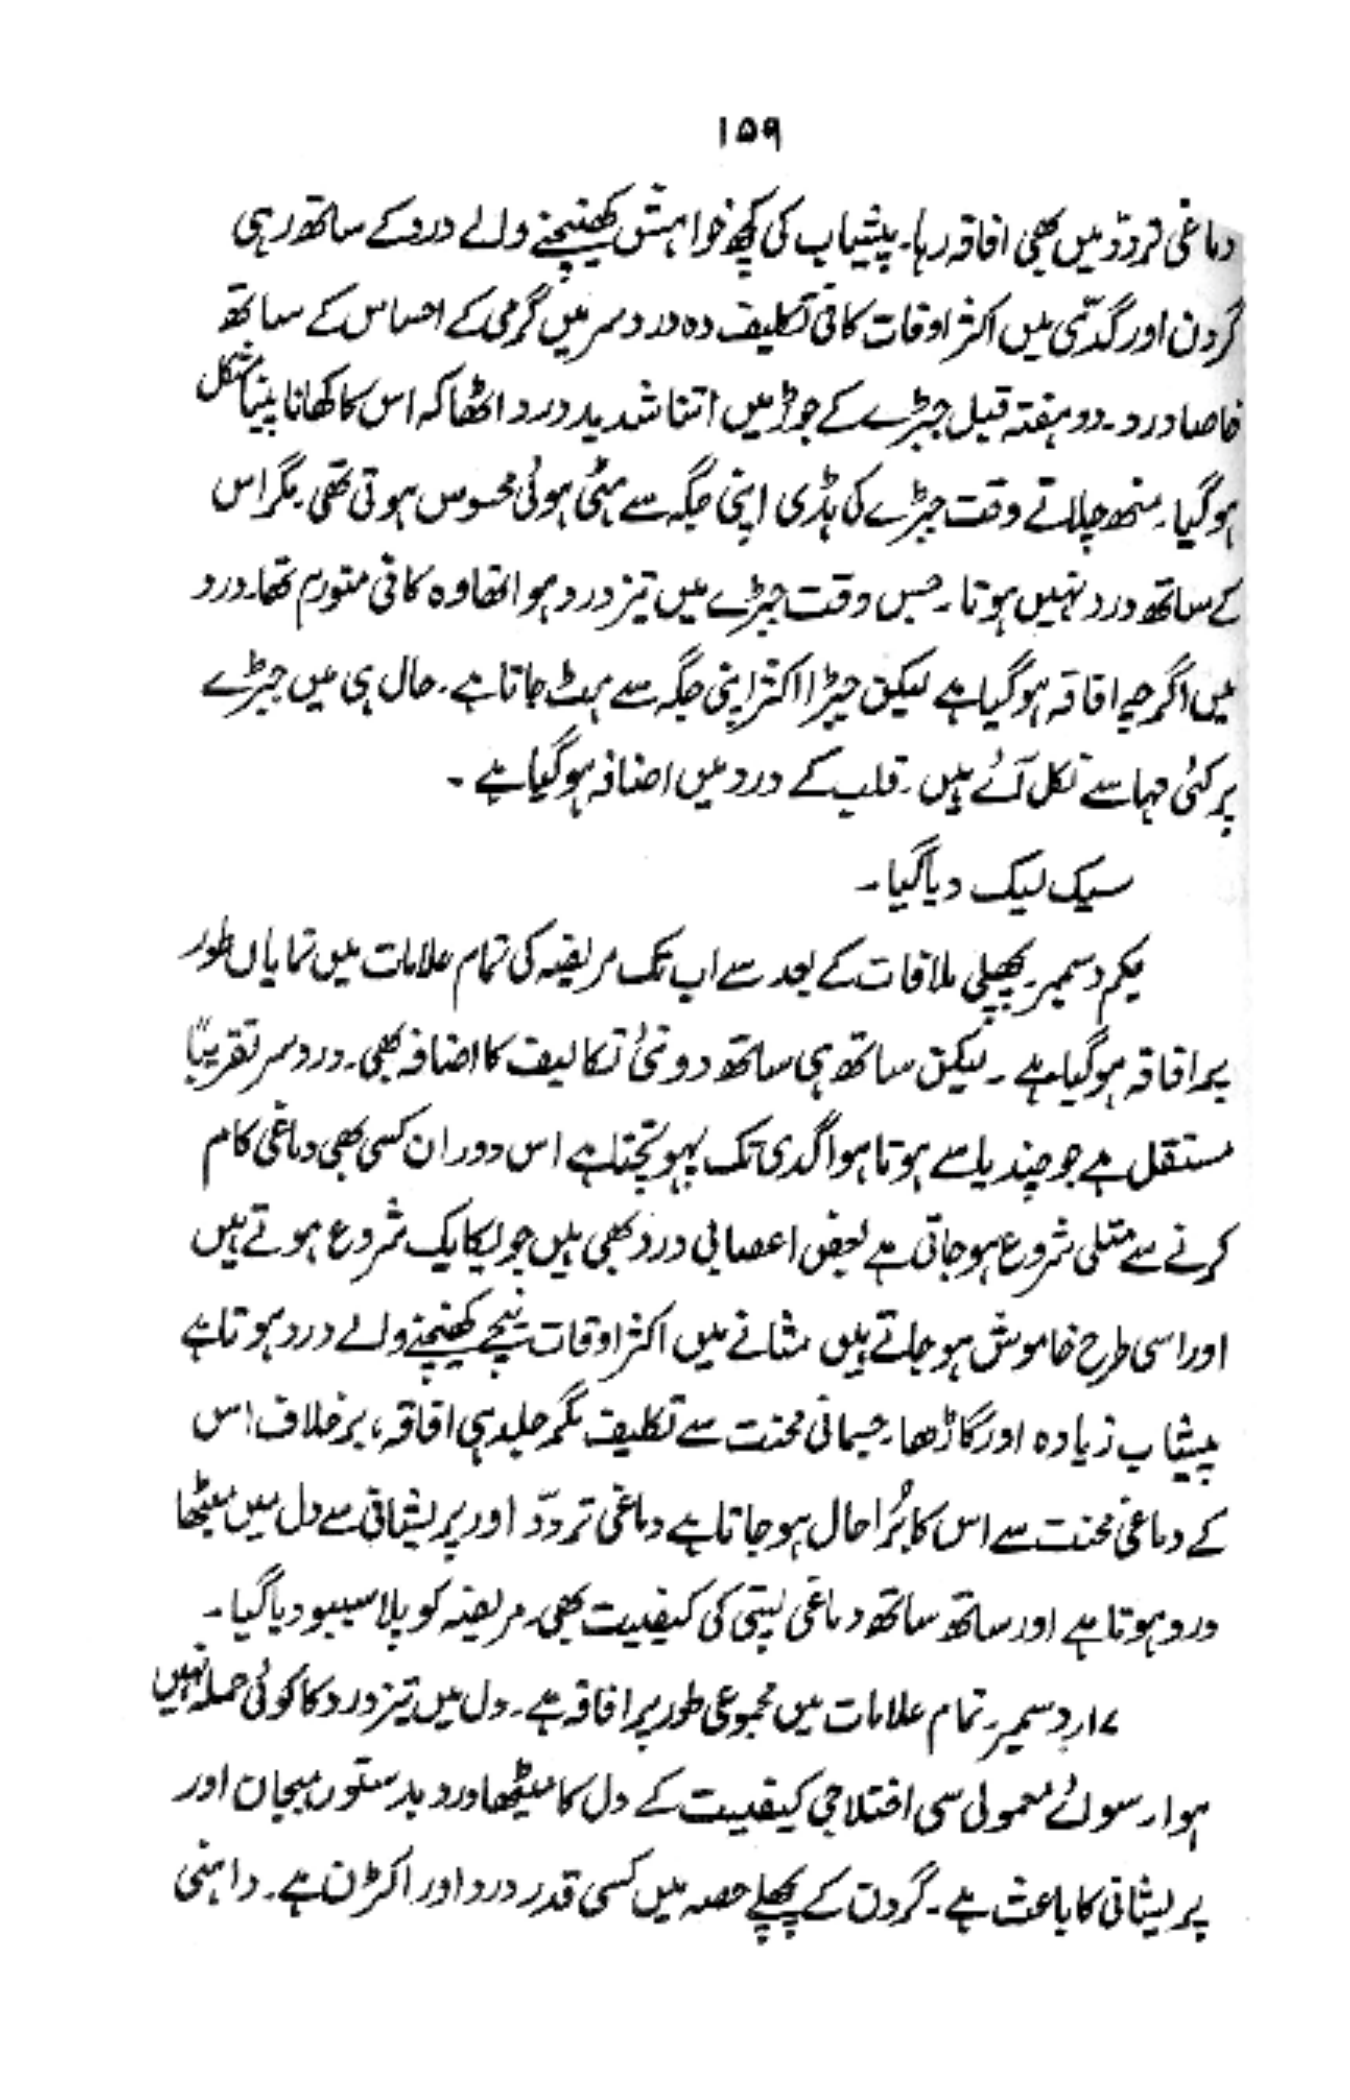 ۱۵۹
دماغی تردّد میں بھی افاقہ رہا۔ پیشیاب کی کچھ خواہش کھنیچنے والے درد کے ساتھ رہی
گردن اور گدّی میں اکثر اوقات کافی تکلیف دہ درد سر میں گرمی کے احساس کے ساتھ
خاصا درد۔ دو ہفتہ قبل جبڑے کے جوڑ میں اتنا شدید درد اٹھا کہ اس کا کھانا پینا مشکل
ہوگیا۔ منھ چلاتے وقت جبڑے کی ہڈی اپنی جگہ سے ہٹی ہوئی محسوس ہوتی تھی۔ مگر اس
کے ساتھ درد نہیں ہوتا۔ جس وقت جبڑے میں تیز درد ہوا تھا وہ کافی متورم تھا۔ درد
میں اگرچہ افاقہ ہوگیا ہے لیکن جبڑا اکثر اپنی جگہ سے ہٹ جاتا ہے۔ حال ہی میں جبڑے
پر کئی مہاسے نکل آئے ہیں۔ قلب کے درد میں اضافہ ہوگیا ہے ۔
سیک لیک دیا گیا۔
یکم دسمبر۔ پچھلی ملاقات کے بعد سے اب تک مریضہ کی تمام علامات میں نمایاں طور
پر افاقہ ہوگیا ہے ۔ لیکن ساتھ ہی ساتھ دو نئی تکالیف کا اضافہ بھی۔ درد سر تقریباً
مستقل ہے جو چندیا سے ہوتا ہوا گدی تک پہونچتا ہے اس دوران کسی بھی دماغی کام
کرنے سے متلی شروع ہوجاتی ہے بعض اعصابی درد بھی ہیں جو یکایک شروع ہوتے ہیں
اور اسی طرح خاموش ہو جاتے ہیں مثانے میں اکثر اوقات نیچے کھنیچنے والے درد ہوتا ہے
پیشاب زیادہ اور گاڑھا۔ جسمانی محنت سے تکلیف مگر جلد ہی افاقہ، برخلاف اس
کے دماغی محنت سے اس کا بُرا حال ہو جاتا ہے دماغی تردّد اور پریشانی سے دل میں میٹھا
درد ہوتا ہے اور ساتھ ساتھ دماغی پستی کی کیفیت بھی۔ مریضہ کو پلاسیبو دیا گیا۔
۱۷؍ دسمبر۔ تمام علامات میں مجموعی طور پر افاقہ ہے۔ دل میں تیز درد کا کوئی حملہ نہیں
ہوا۔ سوائے معمولی سی اختلاجی کیفیت کے دل کا میٹھا درد بدستور، ہیجان اور
پریشانی کا باعث ہے۔ گردن کے پچھلے حصہ میں کسی قدر درد اور اکڑن ہے۔ داہنی